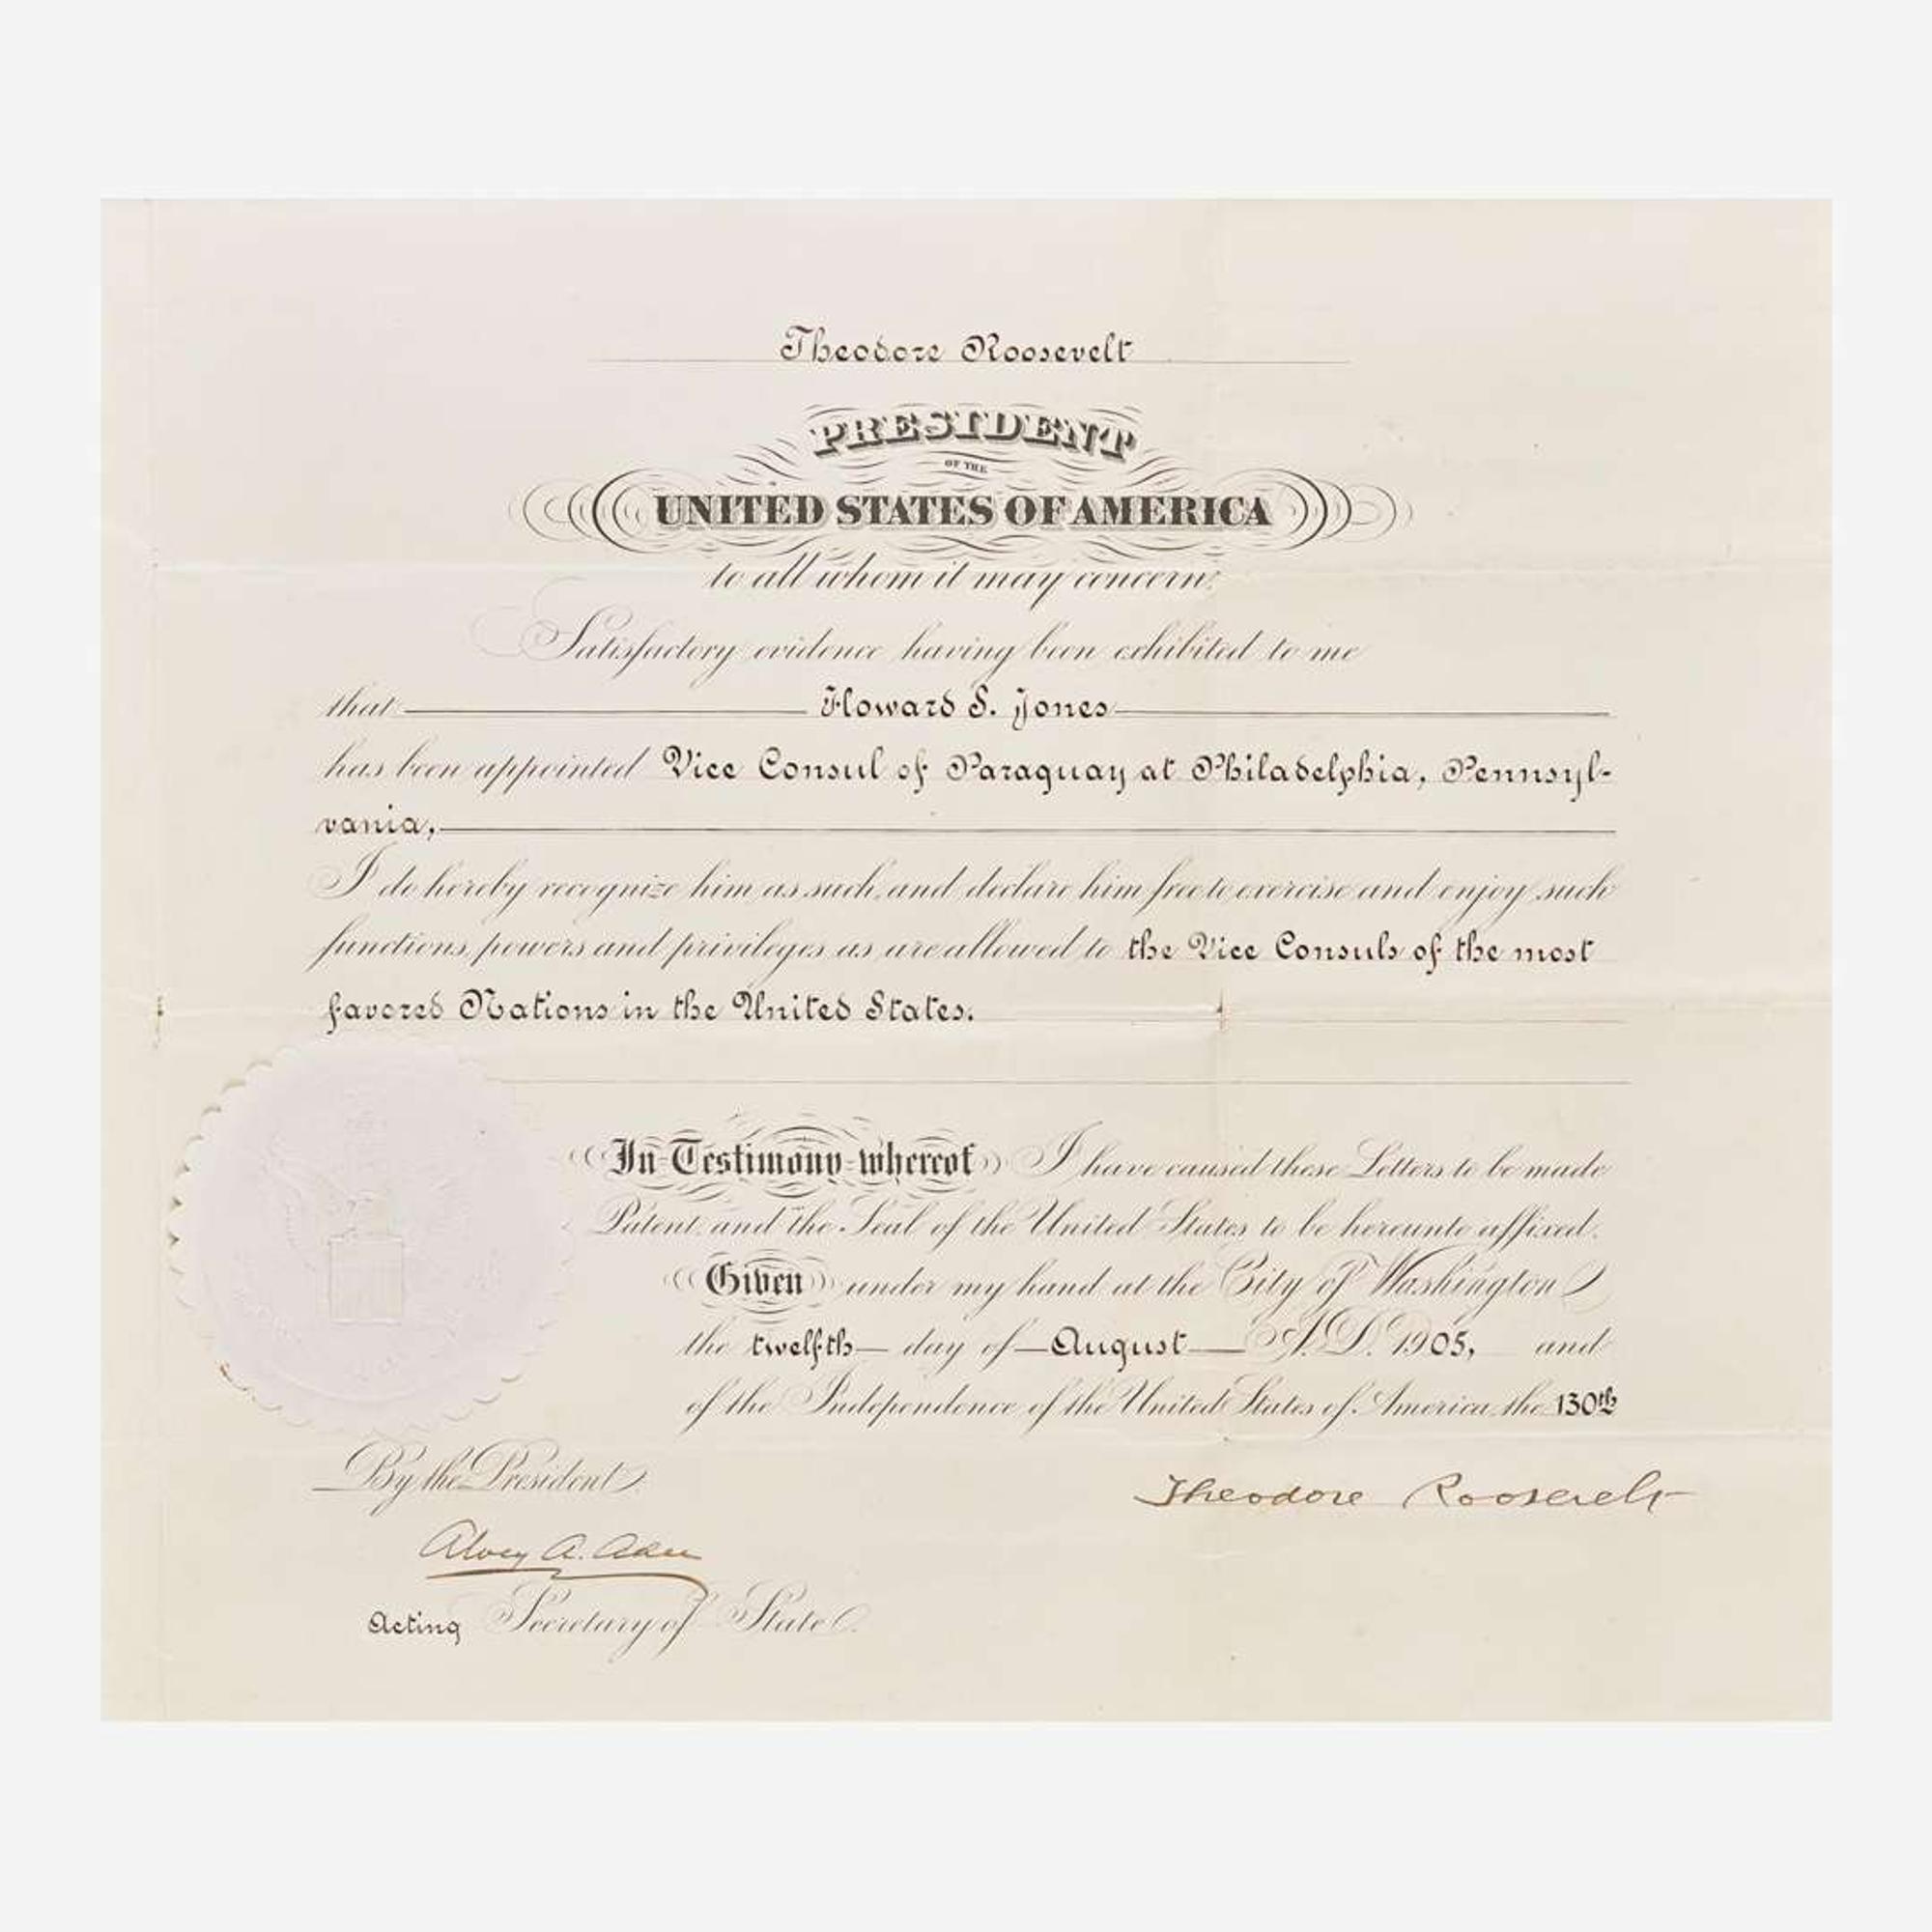 Theodore Roosevelt
PRESIDENT
OF THE
UNITED STATES OF AMERICA
to all whom it may concern:
Satisfactory evidence having been exhibited to me
that Howard S. Jones
has been appointed Vice Consul of Paraguay at Philadelphia, Pennsyl-
vania,
I do hereby recognize him as such, and declare him free to exercise and enjoy such
functions, powers and privileges as are allowed to the Vice Consuls of the most
favored Nations in the United States.
In Testimony whereof I have caused these Letters to be made
Patent, and the Seal of the United States to be hereunto affixed.
Given under my hand at the City of Washington
the twelfth day of August A.D. 1905, and
of the Independence of the United States of America, the 130th
By the President
Theodore Roosevelt
Alvey A. Adee
Acting Secretary of State.